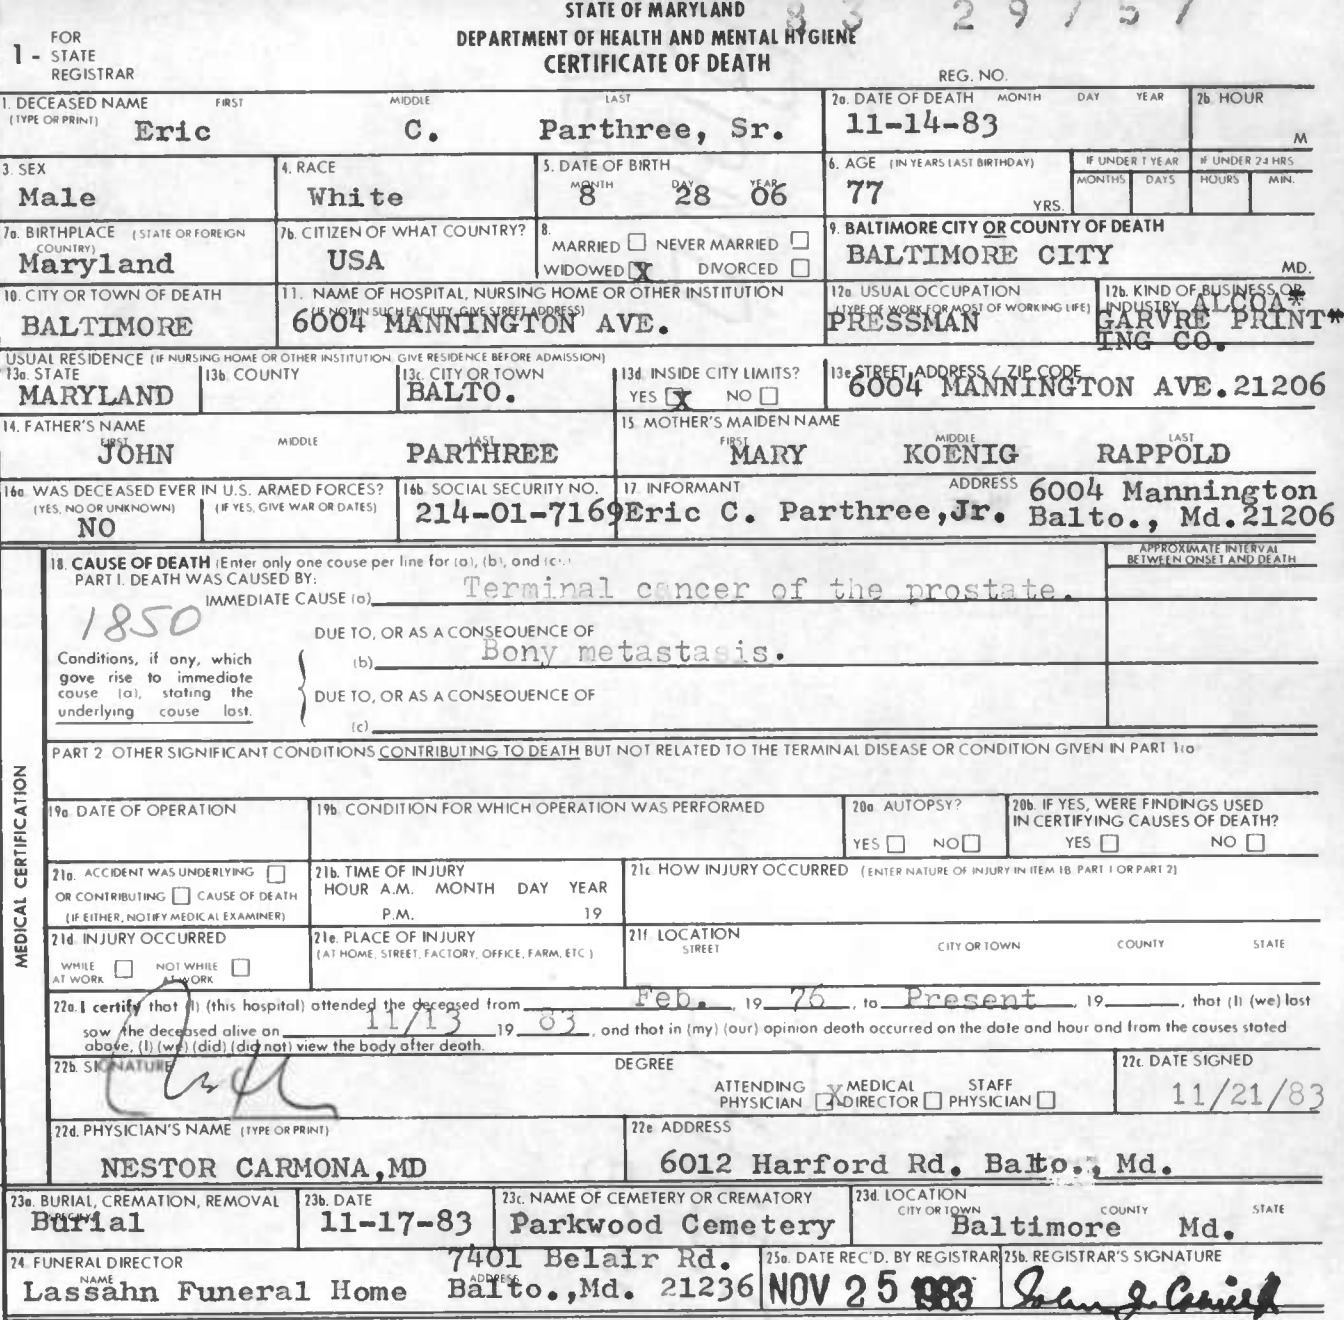 STATE OF MARYLAND
DEPARTMENT OF HEALTH AND MENTAL HYGIENE
CERTIFICATE OF DEATH
83 29757
1 - FOR STATE REGISTRAR
REG. NO.
1. DECEASED NAME (TYPE OR PRINT) FIRST MIDDLE LAST
Eric C. Parthree, Sr.
2a. DATE OF DEATH MONTH DAY YEAR
11-14-83
2b. HOUR M
3. SEX
Male
4. RACE
White
5. DATE OF BIRTH MONTH DAY YEAR
8 28 06
6. AGE (IN YEARS LAST BIRTHDAY)
77 YRS.
IF UNDER 1 YEAR MONTHS DAYS
IF UNDER 24 HRS HOURS MIN.
7a. BIRTHPLACE (STATE OR FOREIGN COUNTRY)
Maryland
7b. CITIZEN OF WHAT COUNTRY?
USA
8. MARRIED ☐ NEVER MARRIED ☐
WIDOWED X DIVORCED ☐
9. BALTIMORE CITY OR COUNTY OF DEATH
BALTIMORE CITY MD.
10. CITY OR TOWN OF DEATH
BALTIMORE
11. NAME OF HOSPITAL, NURSING HOME OR OTHER INSTITUTION
(IF NOT IN SUCH FACILITY, GIVE STREET ADDRESS)
6004 MANNINGTON AVE.
12a. USUAL OCCUPATION
(TYPE OF WORK FOR MOST OF WORKING LIFE)
PRESSMAN
12b. KIND OF BUSINESS OR INDUSTRY
ALCOA*
GARVRE PRINT*
ING CO.
USUAL RESIDENCE (IF NURSING HOME OR OTHER INSTITUTION GIVE RESIDENCE BEFORE ADMISSION)
13a. STATE
MARYLAND
13b. COUNTY
13c. CITY OR TOWN
BALTO.
13d. INSIDE CITY LIMITS?
YES X NO ☐
13e STREET ADDRESS / ZIP CODE
6004 MANNINGTON AVE.21206
14. FATHER'S NAME FIRST MIDDLE LAST
JOHN PARTHREE
15. MOTHER'S MAIDEN NAME FIRST MIDDLE LAST
MARY KOENIG RAPPOLD
16a. WAS DECEASED EVER IN U.S. ARMED FORCES?
(YES, NO OR UNKNOWN) (IF YES, GIVE WAR OR DATES)
NO
16b. SOCIAL SECURITY NO.
214-01-7169
17. INFORMANT ADDRESS
Eric C. Parthree,Jr. 6004 Mannington
Balto., Md.21206
MEDICAL CERTIFICATION
18. CAUSE OF DEATH (Enter only one cause per line for (a), (b), and (c).)
APPROXIMATE INTERVAL BETWEEN ONSET AND DEATH
PART I. DEATH WAS CAUSED BY:
IMMEDIATE CAUSE (a) Terminal cancer of the prostate.
1850
DUE TO, OR AS A CONSEQUENCE OF
(b) Bony metastasis.
Conditions, if any, which
gave rise to immediate
cause (a), stating the
underlying cause last.
DUE TO, OR AS A CONSEQUENCE OF
(c)
PART 2 OTHER SIGNIFICANT CONDITIONS CONTRIBUTING TO DEATH BUT NOT RELATED TO THE TERMINAL DISEASE OR CONDITION GIVEN IN PART 1(a)
19a. DATE OF OPERATION
19b. CONDITION FOR WHICH OPERATION WAS PERFORMED
20a. AUTOPSY?
YES ☐ NO ☐
20b. IF YES, WERE FINDINGS USED IN CERTIFYING CAUSES OF DEATH?
YES ☐ NO ☐
21a. ACCIDENT WAS UNDERLYING ☐
OR CONTRIBUTING ☐ CAUSE OF DEATH
(IF EITHER, NOTIFY MEDICAL EXAMINER)
21b. TIME OF INJURY
HOUR A.M. MONTH DAY YEAR
P.M. 19
21c. HOW INJURY OCCURRED (ENTER NATURE OF INJURY IN ITEM 18, PART 1 OR PART 2)
21d. INJURY OCCURRED
WHILE AT WORK ☐ NOT WHILE AT WORK ☐
21e. PLACE OF INJURY
(AT HOME, STREET, FACTORY, OFFICE, FARM, ETC.)
21f. LOCATION
STREET CITY OR TOWN COUNTY STATE
22a. I certify that (I) (this hospital) attended the deceased from Feb. , 19 76 , to Present , 19 , that (I) (we) last
saw the deceased alive on 11/13 19 83 , and that in (my) (our) opinion death occurred on the date and hour and from the causes stated
above, (I) (we) (did) (did not) view the body after death.
22b. SIGNATURE
DEGREE
ATTENDING PHYSICIAN X MEDICAL DIRECTOR ☐ STAFF PHYSICIAN ☐
22c. DATE SIGNED
11/21/83
22d. PHYSICIAN'S NAME (TYPE OR PRINT)
NESTOR CARMONA,MD
22e ADDRESS
6012 Harford Rd. Balto., Md.
23a. BURIAL, CREMATION, REMOVAL
Burial
23b. DATE
11-17-83
23c. NAME OF CEMETERY OR CREMATORY
Parkwood Cemetery
23d. LOCATION
CITY OR TOWN COUNTY STATE
Baltimore Md.
24. FUNERAL DIRECTOR
NAME ADDRESS
Lassahn Funeral Home 7401 Belair Rd.
Balto.,Md. 21236
25a. DATE REC'D. BY REGISTRAR
NOV 25 1983
25b. REGISTRAR'S SIGNATURE